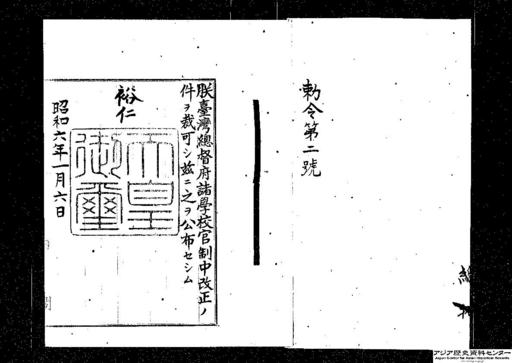 勅令第二號
朕臺灣總督府諸學校官制中改正ノ
件ヲ裁可シ玆ニ之ヲ公布セシム
裕仁
天皇
御璽
昭和六年一月六日
アジア歴史資料センター
Japan Center for Asian Historical Records